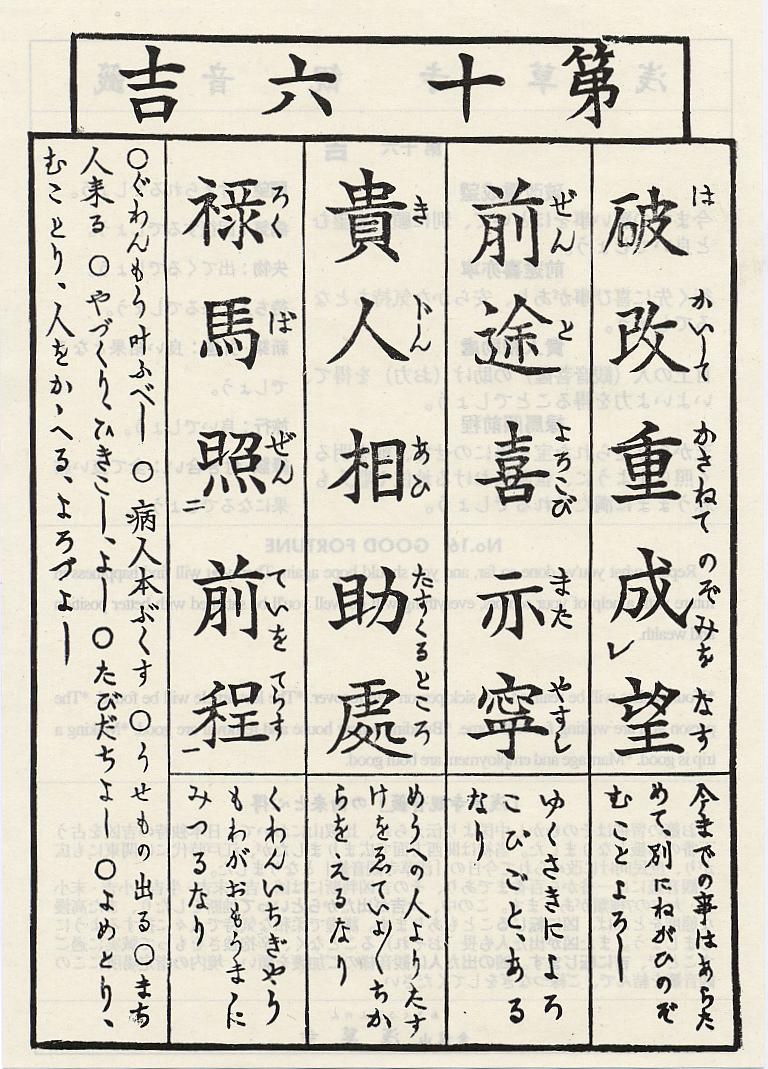 第十六吉
は かいして かさねて のぞみを なす
破改重成レ望
今までの事はあらた
めて、別にねがひのぞ
むことよろし
ぜん と よろこび また やすし
前途喜亦寧
ゆさきによろ
こひごとある
なり
き じん あひ たすくるところ
貴人相助處
めうへの人よりたす
けをゑいよいよちか
らをえるなり
ろく ば ぜん ていを てらす
禄馬照二前程一
くわんいちぎやう
もわがおもうまに
みつるなり
○ぐわんもう叶ふべし ○病人本ぶくす ○うせもの出る○まち
人来る ○やづくり、ひきこし、よし ○たびだちよし ○よめとり、
むことり、人をかゝへる、よろづよし